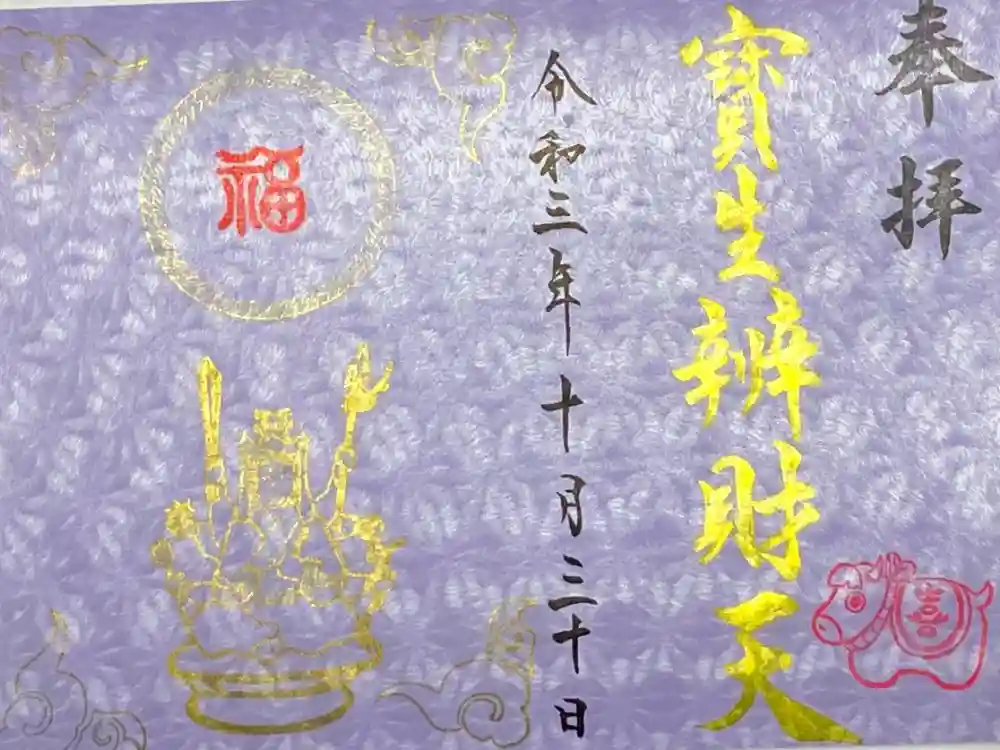 奉拝
寶生辨財天
令和三年十月三十日
福
喜